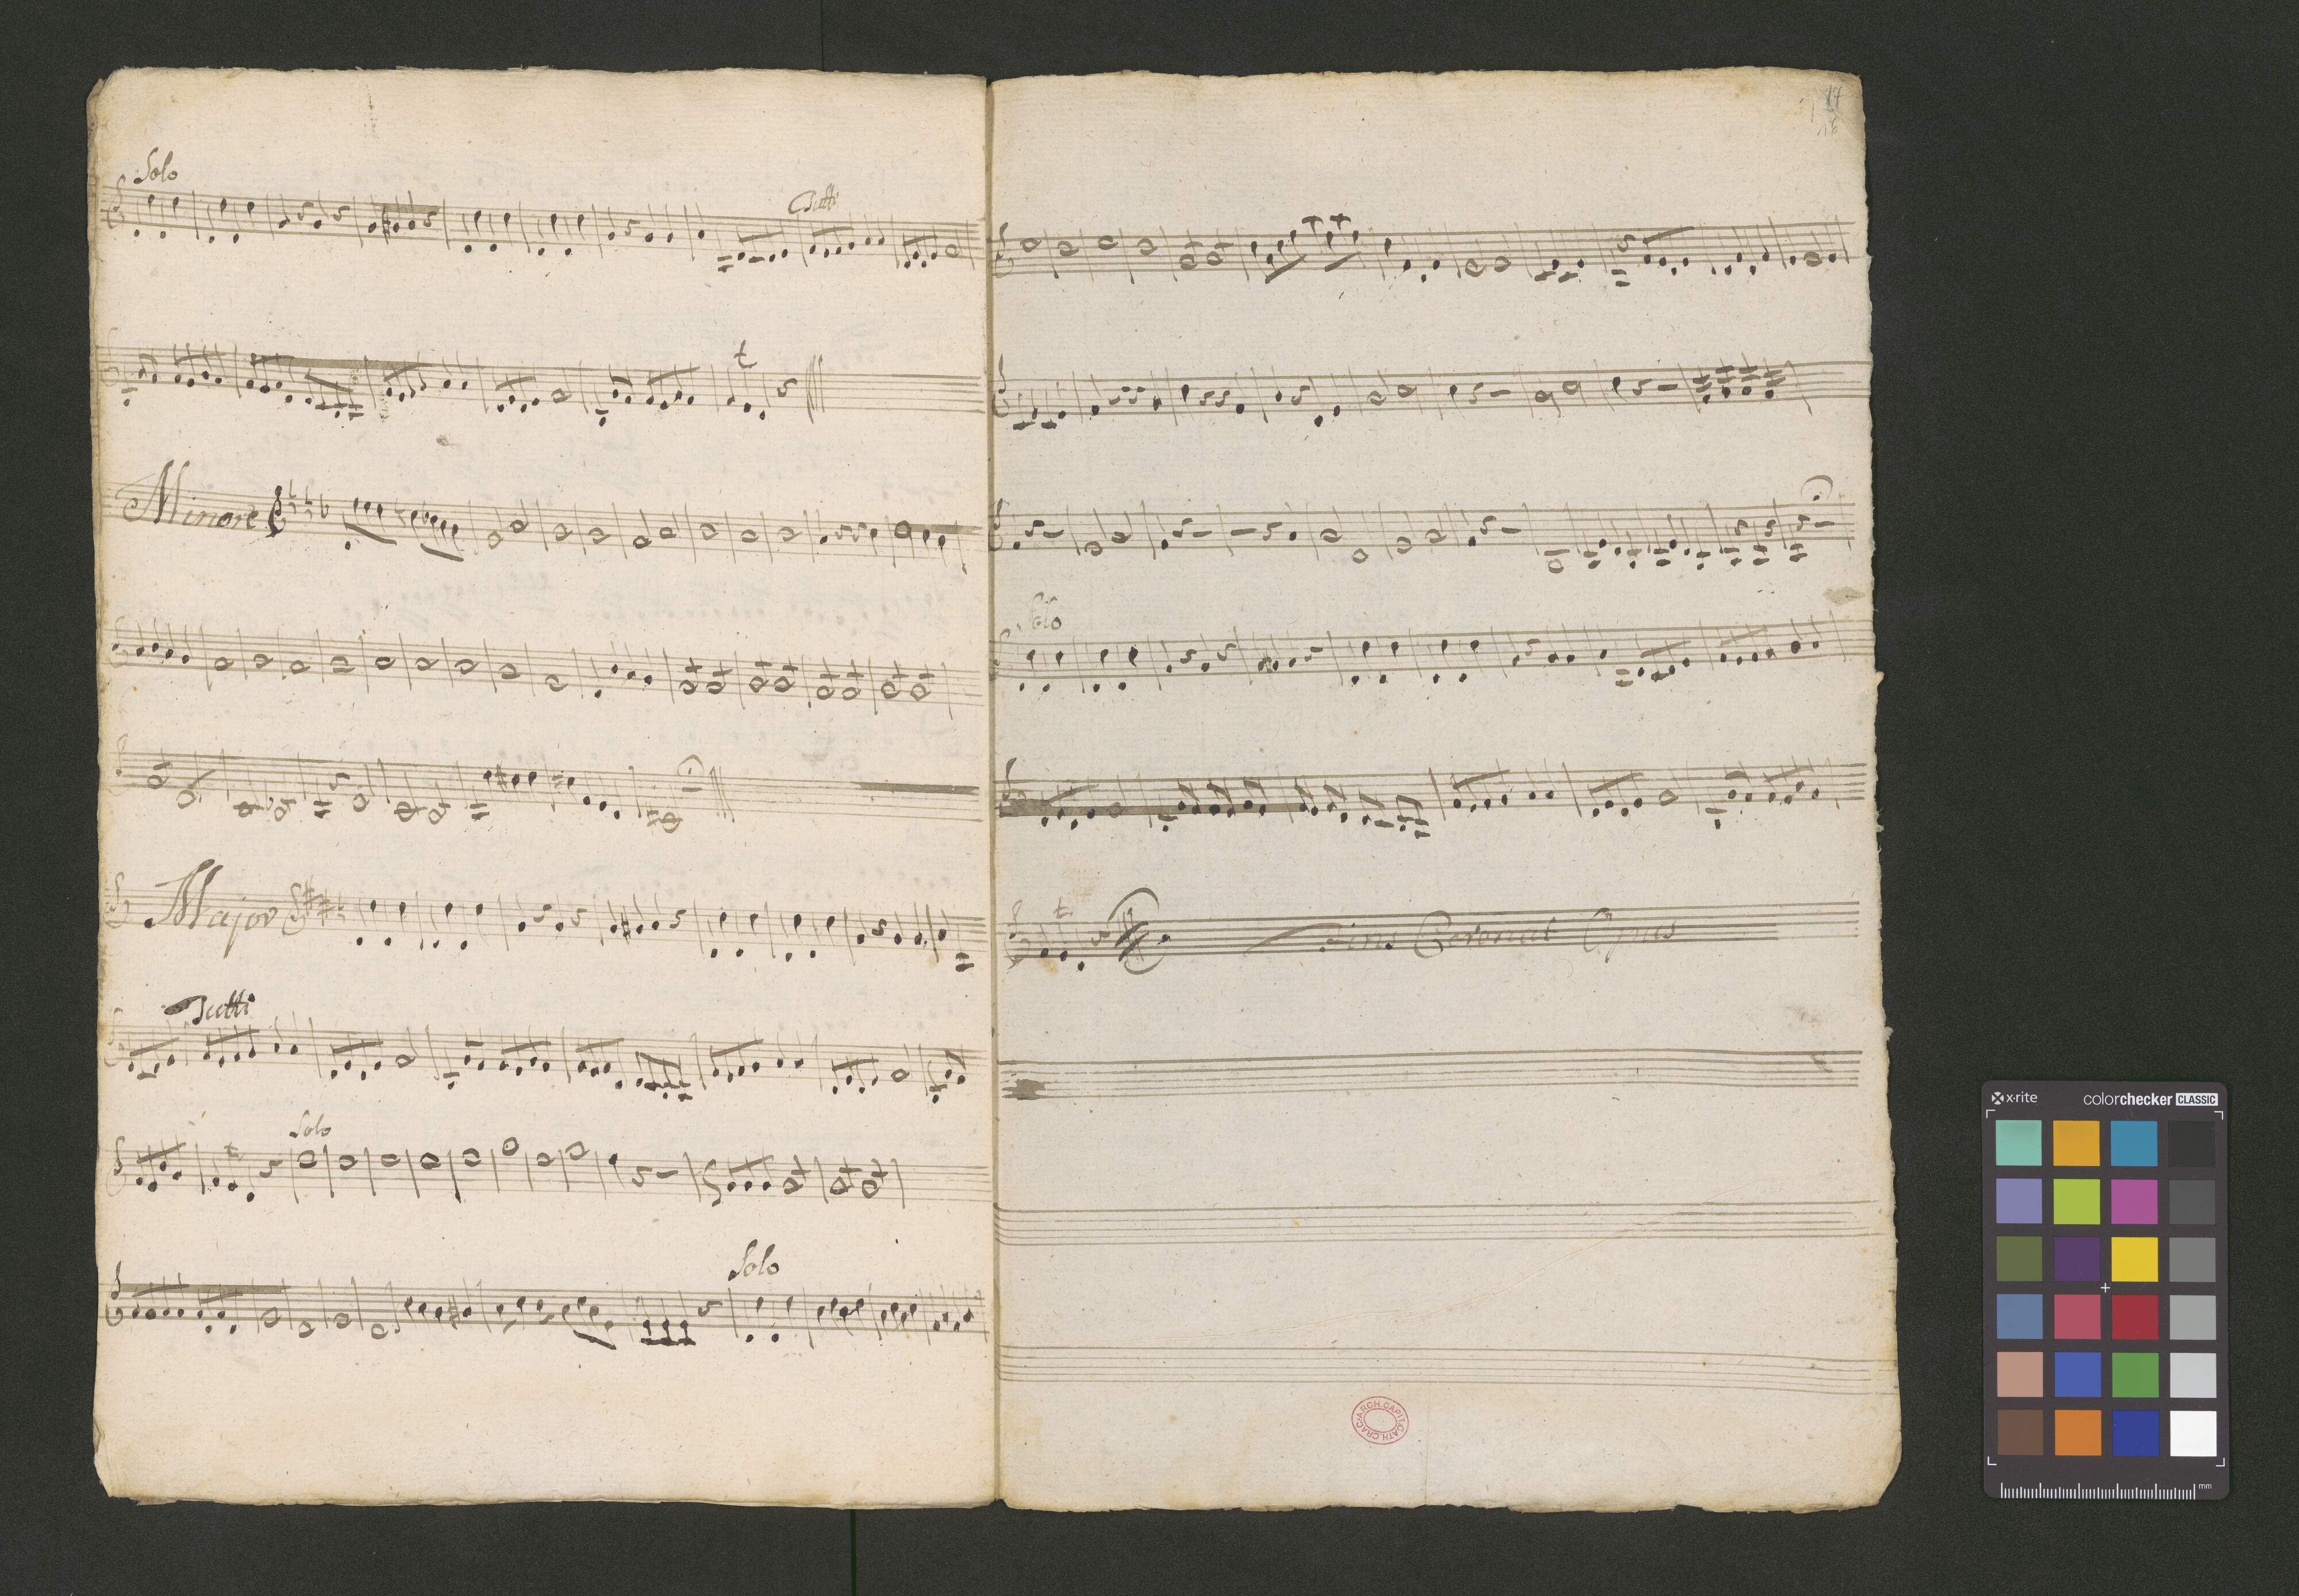 Solo
Tutti
t
Minore
Major
Tutti
Solo
t
Solo
14
16
Solo
t
Finis Coronat Opus
ARCH. CAPIT. CATH. CRAC.
x-rite colorchecker CLASSIC
mm